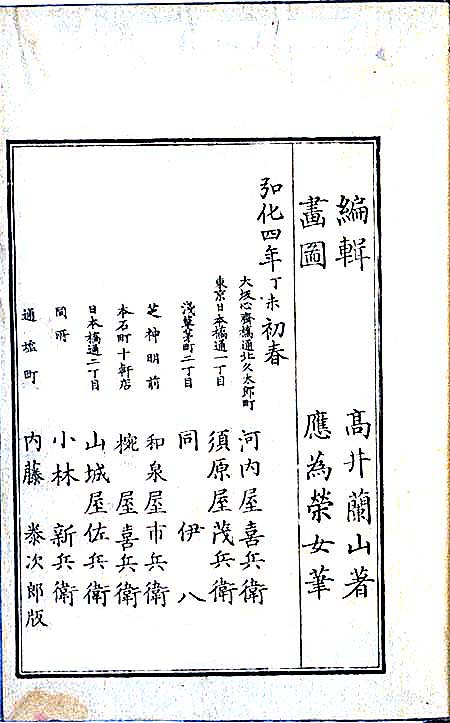 編輯 高井蘭山著
畫圖 應為榮女筆
弘化四年丁未初春
大坂心齋橋通北久太郎町 河内屋喜兵衛
東京日本橋通一丁目 須原屋茂兵衛
淺草茅町二丁目 同 伊八
芝神明前 和泉屋市兵衛
本石町十軒店 椀屋喜兵衛
日本橋通二丁目 山城屋佐兵衛
同所 小林新兵衛
通塩町 内藤泰次郎版